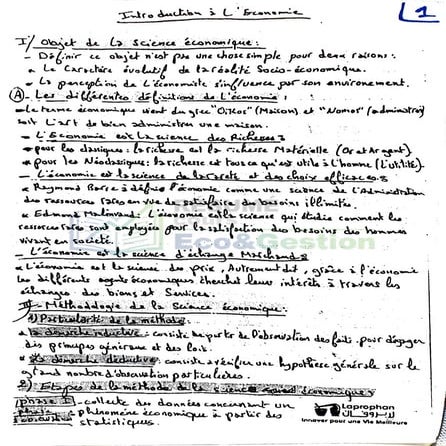 Introduction à L'Economie
1
I/ Objet de la science économique:
- Définir ce objet n'est pas une chose simple pour deux raisons:
• Le Caractère évolutif de la réalité Socio-économique.
• La perception de l'économiste s'influence par son environement.
A - Les différentes définitions de l'économie:
• Le terme économique vient du grec "Oikos" (Maison) et "Nomos" (administrer)
soit l'art de bien administrer une maison.
- L'Economie est la science des Richesses
• pour les classiques: la richesse est la richesse Matérielle (Or et Argent).
• pour les Néoclassiques: la richesse est tous ce qui est utile à l'homme (l'utilité).
- L'économie est la science de la rareté et des choix efficaces
• Raymond Barre à défini l'économie comme une science de l'Administration
des ressources rares en vue de satisfaire des besoins illimités.
• Edmond Malinvaud: l'économie est la science qui étudie comment les
ressources rares sont employés pour la satisfaction des besoins des hommes
vivant en société.
- L'économie est la science d'échange Marchand
• L'économie est la science des prix, Autrement dit, grâce à l'économie
les différents agents économiques cherchent leur intérêts à travers les
échanges des biens et Services.
II - Méthodologie de la Science économique:
1) Particularité de la méthode:
• la démarche inductive: consiste à partir de l'observation des faits pour dégager
des principes généraux et des lois.
• la démarche déductive: consiste à vérifier une hypothèse générale sur le
grand nombre d'observation particulières.
2) Etapes de la méthode de la science économique:
phase 1 - collecte des données concernant un
phénomène économique à partir des
statistiques.
RÉSUMÉ
Eco&Gestion
Laprophan
لابروفان
Innover pour une Vie Meilleure